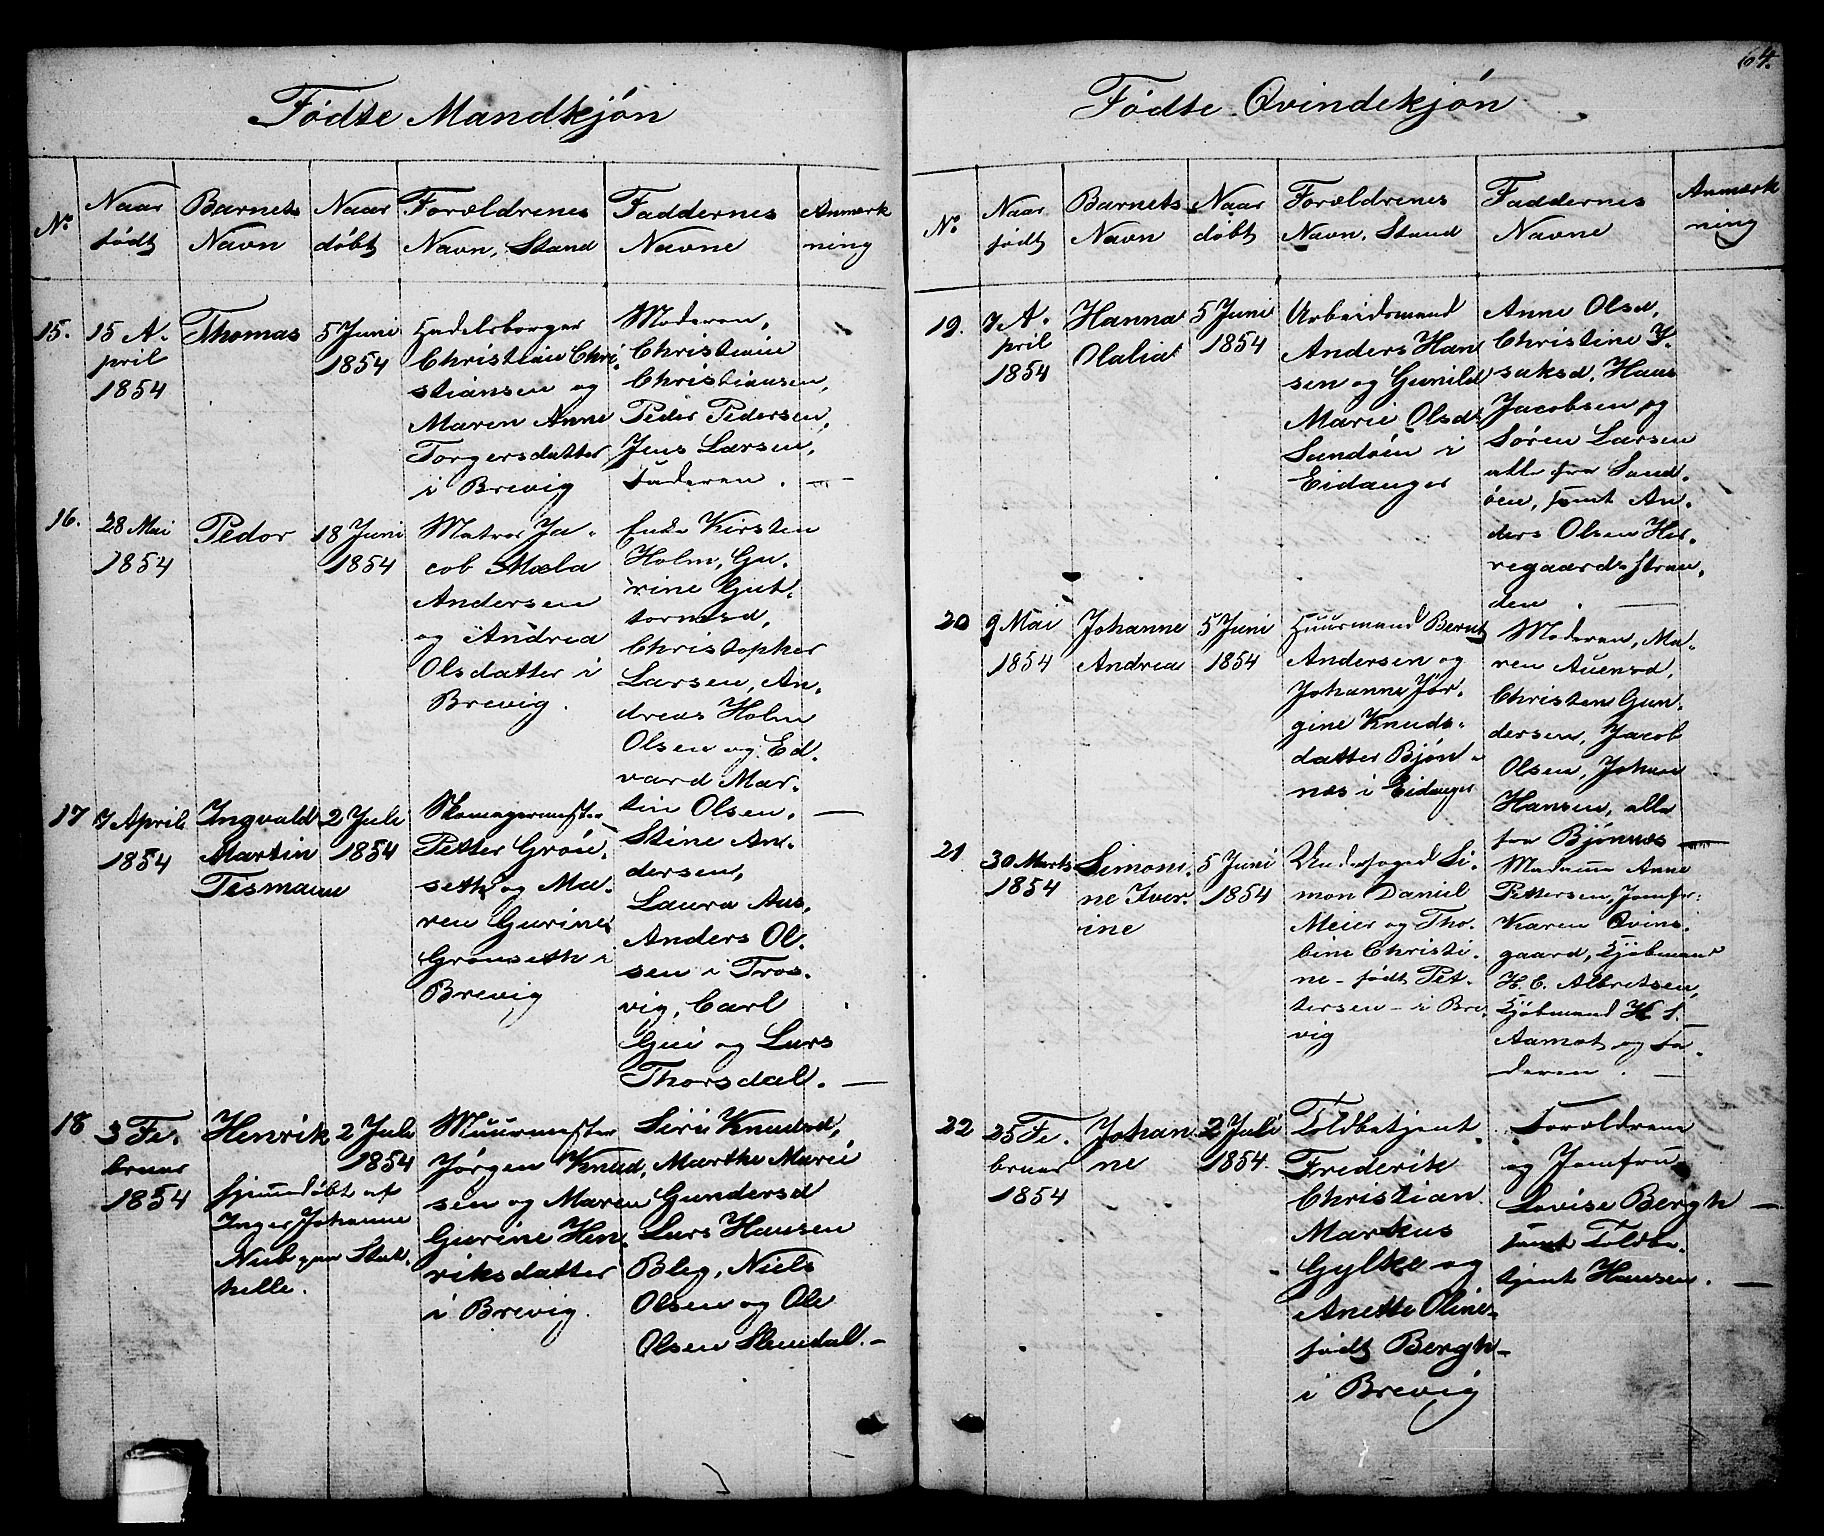 Fødte Mandkjön
No
Naar
født
Barnets
Navn
Naar
døbt
Forældrenes
Navn, Stand
Faddernes
Navne
Anmærk
ning
15.
15 A-
pril
1854
Thomas
5 Juni
1854
Handelsborger
Christian Chri-
stiansen og
Maren Anne
Torgersdatter
i Brevig
Moderen,
Christian
Christiansen,
Peder Pedersen,
Jens Larsen,
Faderen.
16.
28 Mai
1854
Peder
18 Juni
1854
Matros Ja-
cob Mæla
Andersen
og Andrea
Olsdatter i
Brevig.
Enke Kirsten
Holm, Gu-
rine Gut-
tormsd,
Christopher
Larsen, An-
dreas Holm
Olsen og Ed-
vard Mar-
tin Olsen.
17
7 April
1854
Ingvald
Martin
Tesmann
2 Juli
1854
Skomagermester
Petter Grön-
seth og Ma-
ren Gurine
Grönseth i
Brevig
Stine An-
dersen,
Laura Aas,
Anders Ol-
sen i Tros-
vig, Carl
Gui og Lars
Thorsdal.
18
3 Fe-
bruar
1854
Henrik
hjemmedøbt af
Inger Johanne
Stat-
helle.
2 Juli
1854
Muurmester
Jörgen Knud-
sen og Maren
Gurine Hen-
riksdatter
i Brevig.
Siri Knudsd,
Marthe Marie
Gundersd
Lars Hansen
Bleg, Niels
Olsen og Ole
Olsen Stendal.
64.
Fødte Qvindekjön
No
Naar
født
Barnets
Navn
Naar
døbt
Forældrenes
Navn, Stand
Faddernes
Navne
Anmærk
ning
19.
7 A-
pril
1854
Hanna
Olalia
5 Juni
1854
Arbeidsmand
Anders Han
sen og Gunild
Marie Olsd
Sandöen i
Eidanger
Anne Olsd,
Christine I-
saksd, Hans
Jacobsen og
Sören Larsen
alle fra Sand-
öen, samt An-
ders Olsen Her-
regaardsstran-
den.
20
9 Mai
1854
Johanne
Andrea
5 Juni
1854
Huusmand Bernt
Andersen og
Johanne Jör-
gine Knuds-
datter Bjön-
næs i Eidanger
Moderen, Ma-
ren Auensd,
Christen Gun-
dersen, Jacob
Olsen, Johan
Hansen, alle
fra Bjönnæs
21
30 Marts
1854
Simoni-
ne Iver-
ine
5 Juni
1854
Underfoged Si-
mon Daniel
Meier og Tho-
bine Christi-
ne - født Pet-
tersen - i Bre-
vig
Madame Anne
Pettersen, Jomfru
Karen Qvins-
gaard, Kjöbmand
H. C. Albretsen,
Kjöbmand H. S.
Aamot og Fa-
deren.
22
25 Fe-
bruar
1854
Johan-
ne
2 Juli
1854.
Toldbetjent
Frederik
Christian
Markus
Gylke og
Anette Oline
født Bergh
i Brevig
Forældrene
og Jomfru
Lovise Bergh
samt Toldbe-
tjent Hansen.